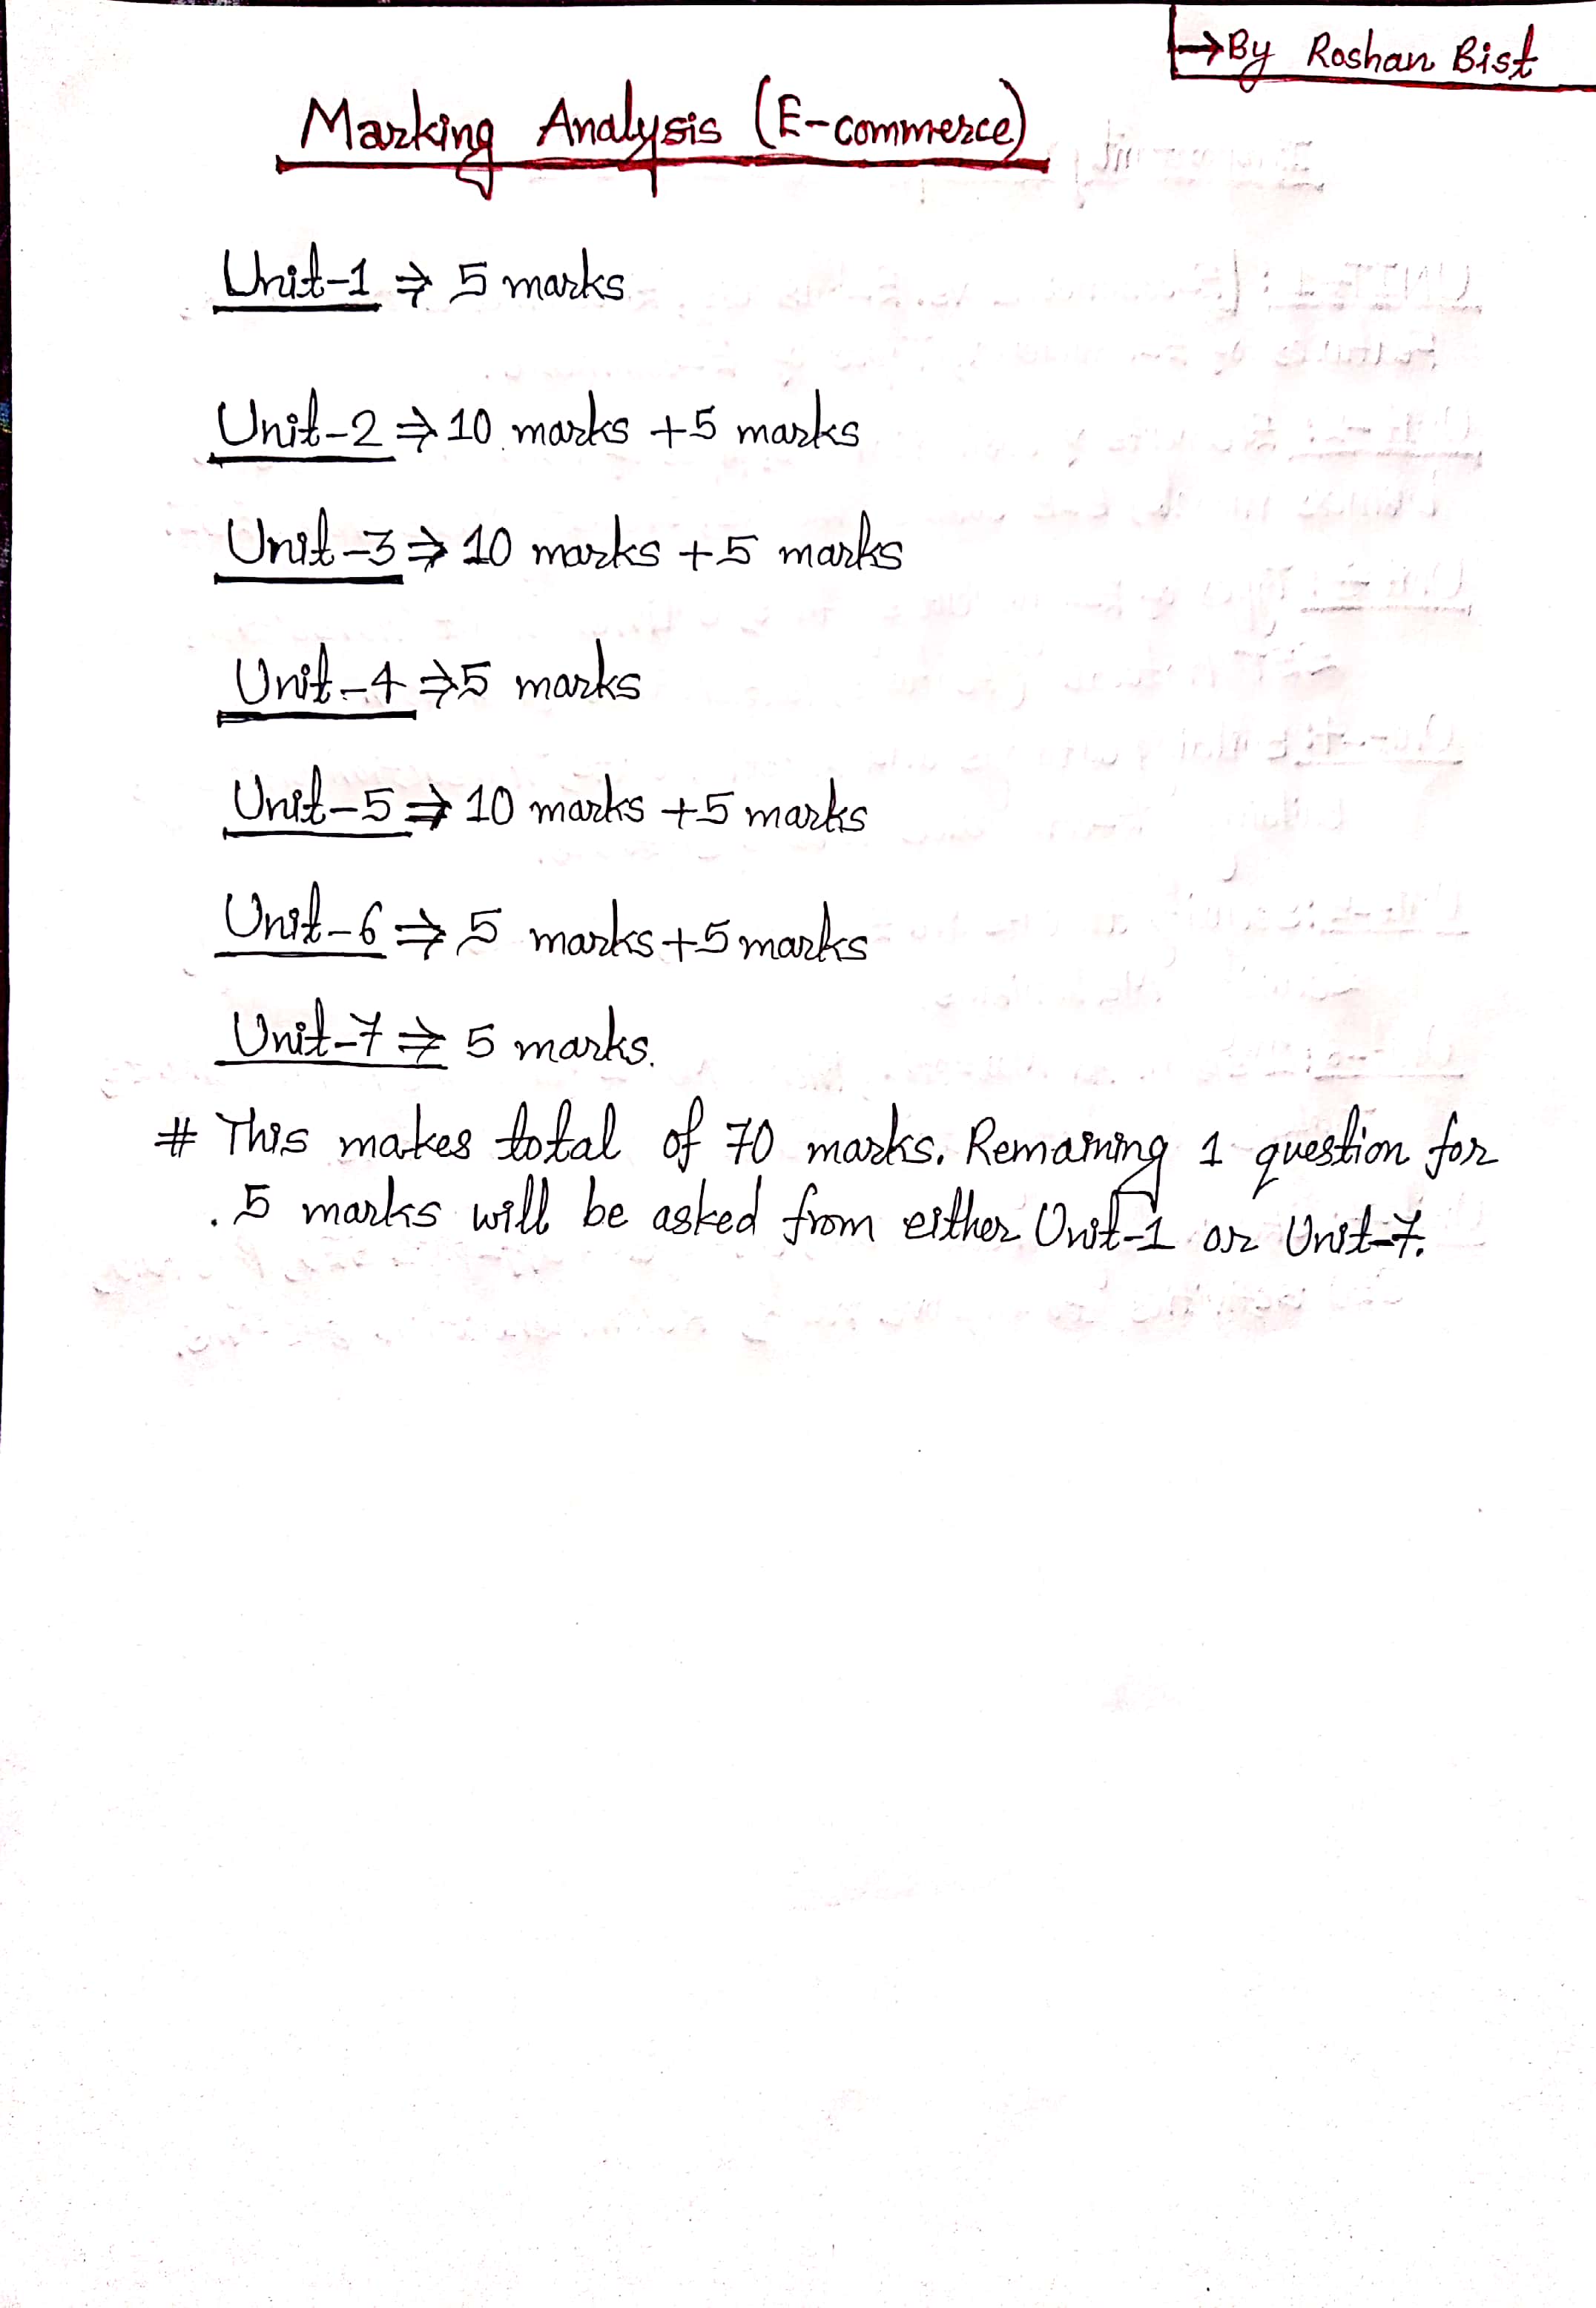 →By Roshan Bist
Marking Analysis (E-commerce)
Unit-1 ⇒ 5 marks
Unit-2 ⇒ 10 marks +5 marks
Unit-3 ⇒ 10 marks +5 marks
Unit-4 ⇒ 5 marks
Unit-5 ⇒ 10 marks +5 marks
Unit-6 ⇒ 5 marks+5 marks
Unit-7 ⇒ 5 marks.
# This makes total of 70 marks. Remaining 1 question for
5 marks will be asked from either Unit-1 or Unit-7.